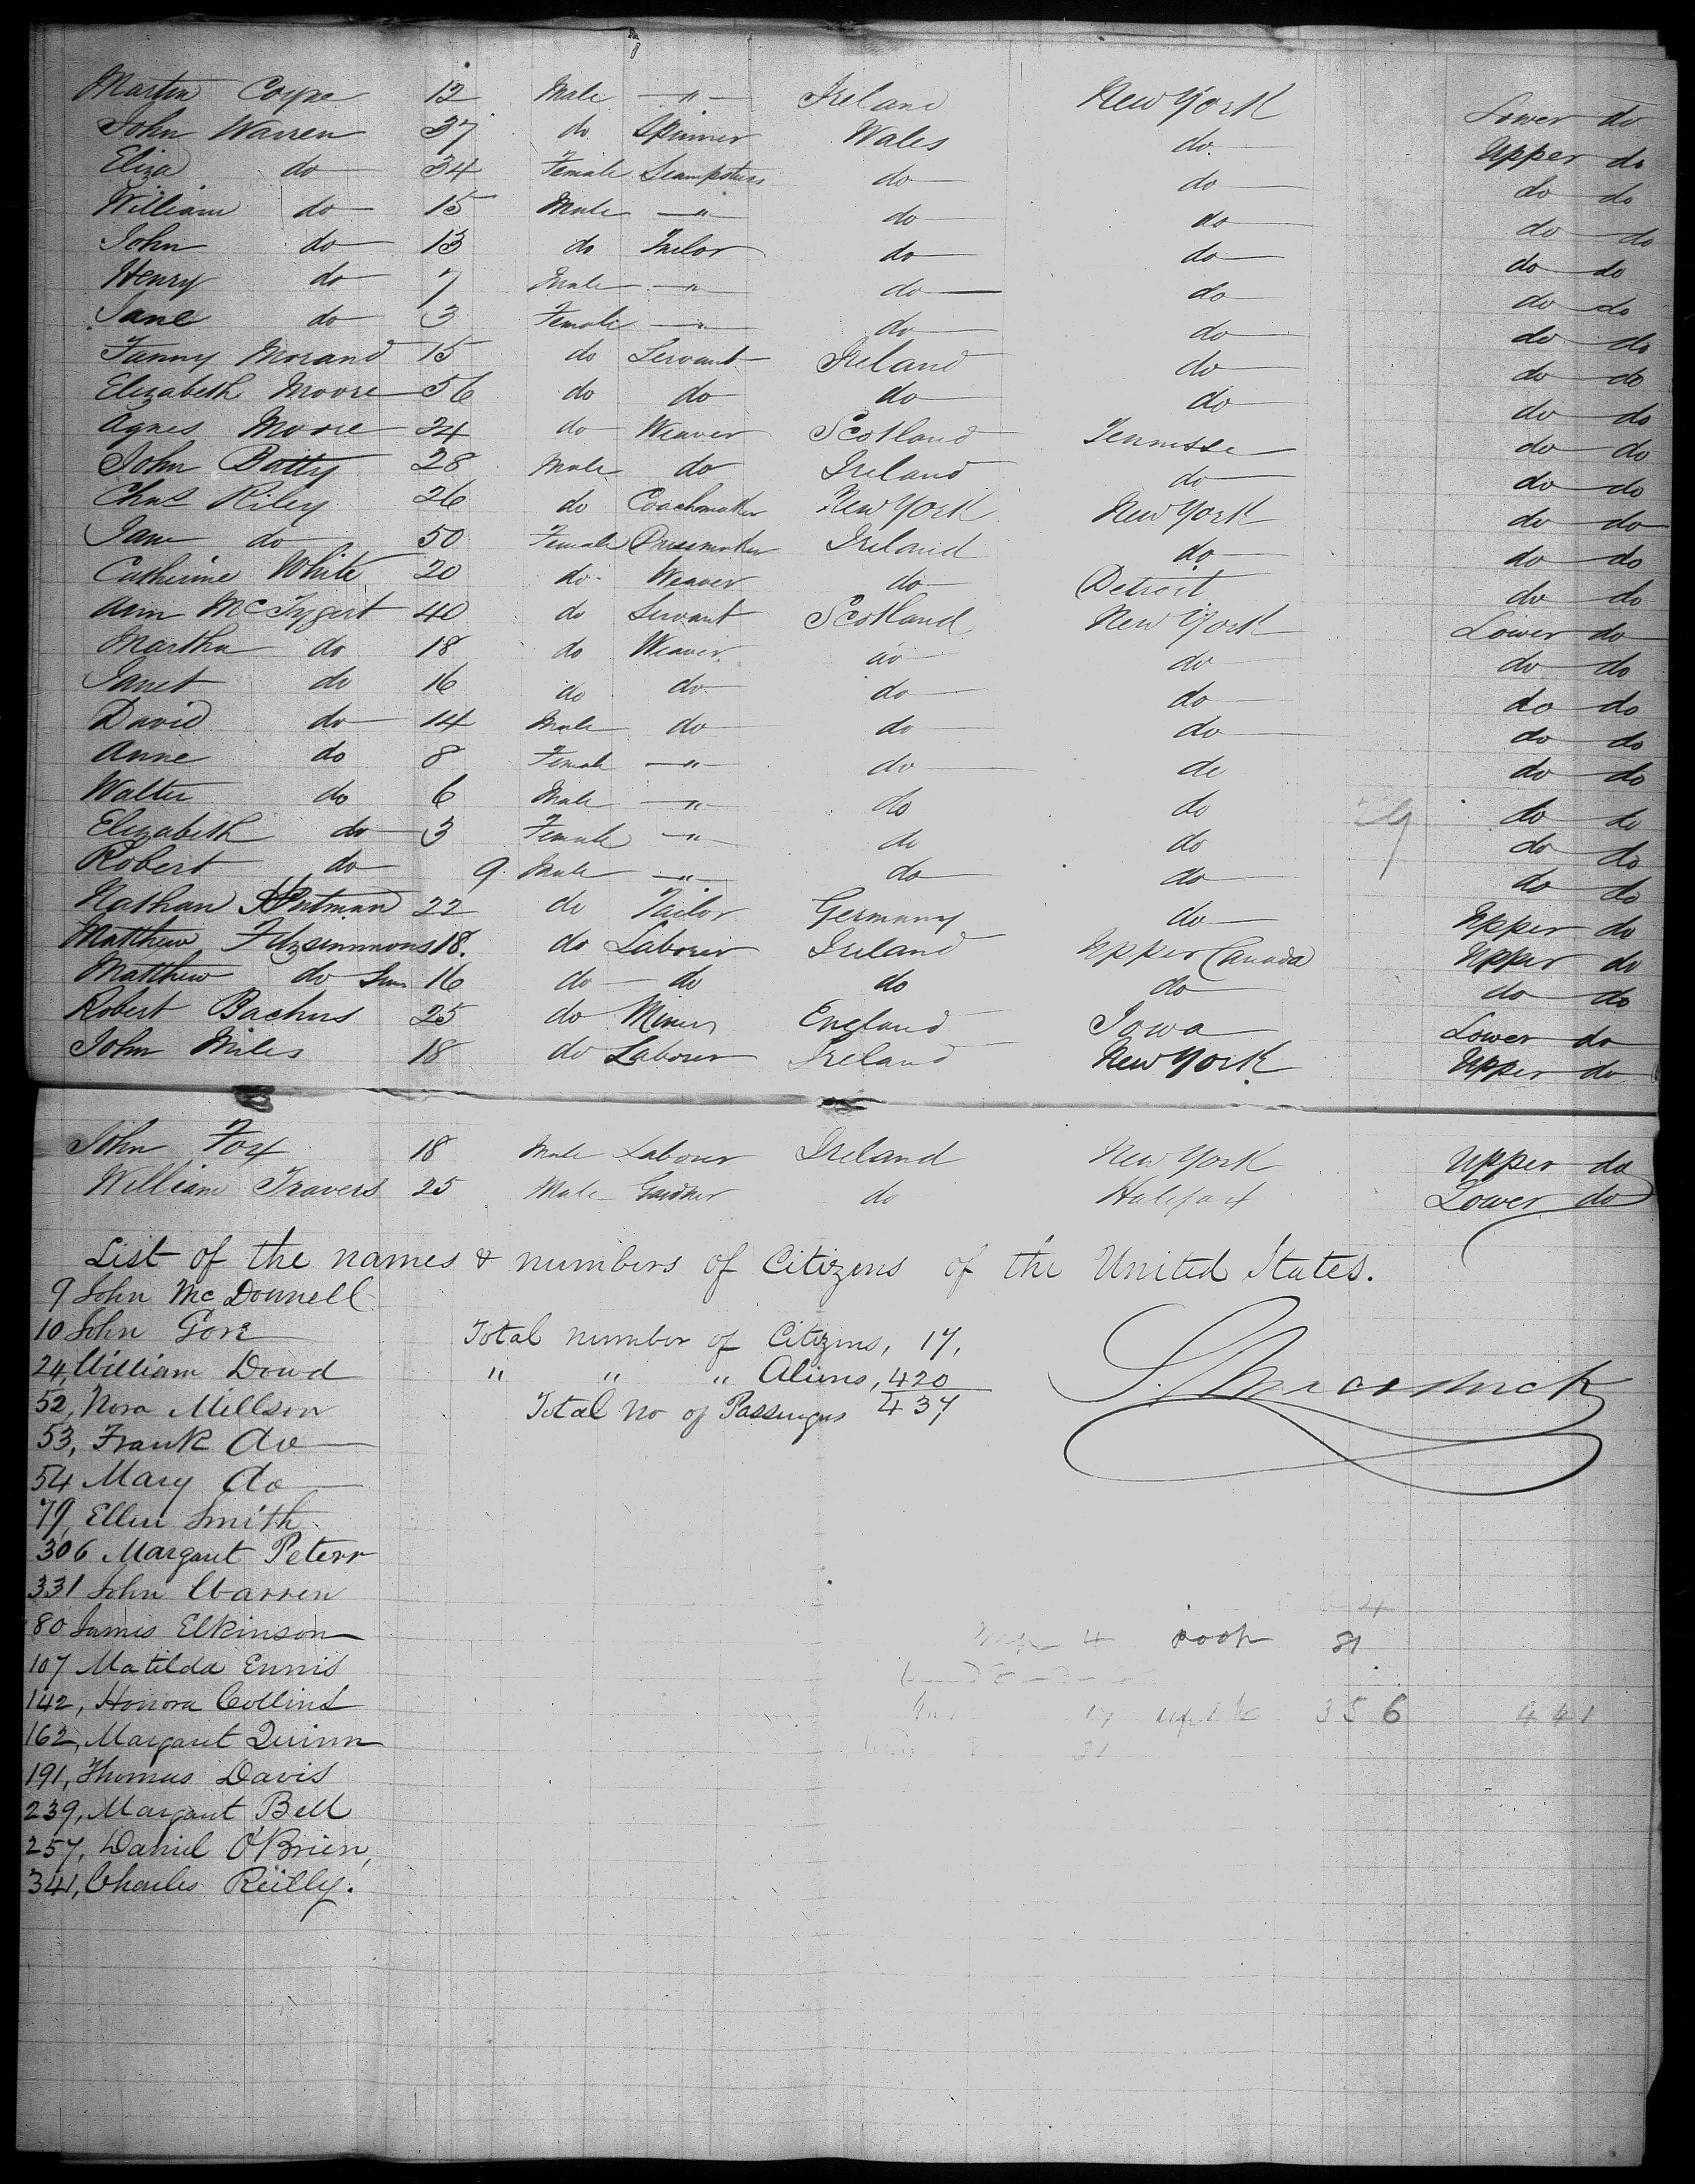 Martin Coyne 12 Male — " — Ireland New York Lower do
John Warren 37 do Spinner Wales do Upper do
Eliza do 34 Female Seampstress do do do do
William do 15 Male — " — do do do do
John do 13 do Tailor do do do do
Henry do 7 Male — " — do do do do
Jane do 3 Female — " — do do do do
Fanny Morand 15 do Servant Ireland do do do
Elizabeth Moore 56 do do do do do do
Agnes Moore 24 do Weaver Scotland Tennisse do do
John Batty 28 Male do Ireland do do do
Chas Riley 26 do Coachmaker New York New York do do
Jane do 50 Female Dressmaker Ireland do do do
Catherine White 20 do Weaver do Detroit do do
Ann McTygert 40 do Servant Scotland New York Lower do
Martha do 18 do Weaver do do do do
Janet do 16 do do do do do do
David do 14 Male do do do do do
Anne do 8 Female — " — do do do do
Walter do 6 Male — " — do do do do
Elizabeth do 3 Female — " — do do do do
Robert do 9 Male — " — do do do do
Nathan 22 do Tailor Germany do Upper do
Matthew Fitzsimmons 18. do Laborer Ireland Upper Canada Upper do
Matthew do 16 do do do do do do
Robert Bachus 25 do Miner England Iowa Lower do
John Miles 18 do Labourer Ireland New York Upper do
John Fox 18 Male Labourer Ireland New York Upper do
William Travers 25 Male Gardner do Halifax Lower do
List of the names & numbers of Citizens of the United States.
9 John McDonnell
10 John Gore Total number of Citizens, 17,
24, William Dowd " " " Aliens, 420
52, Nora Millson Total No of Passengers 437
53, Frank do
54 Mary do
79, Ellen Smith
306 Margaret Peterr
331 John Warren
80 James Elkinson 4 poop 81
107 Matilda Ennis
142, Honora Collins 17 356 441
162, Margaret Quinn
191, Thomas Davis
239, Margaret Bell
257, Daniel O'Brien,
341, Charles Reilly.